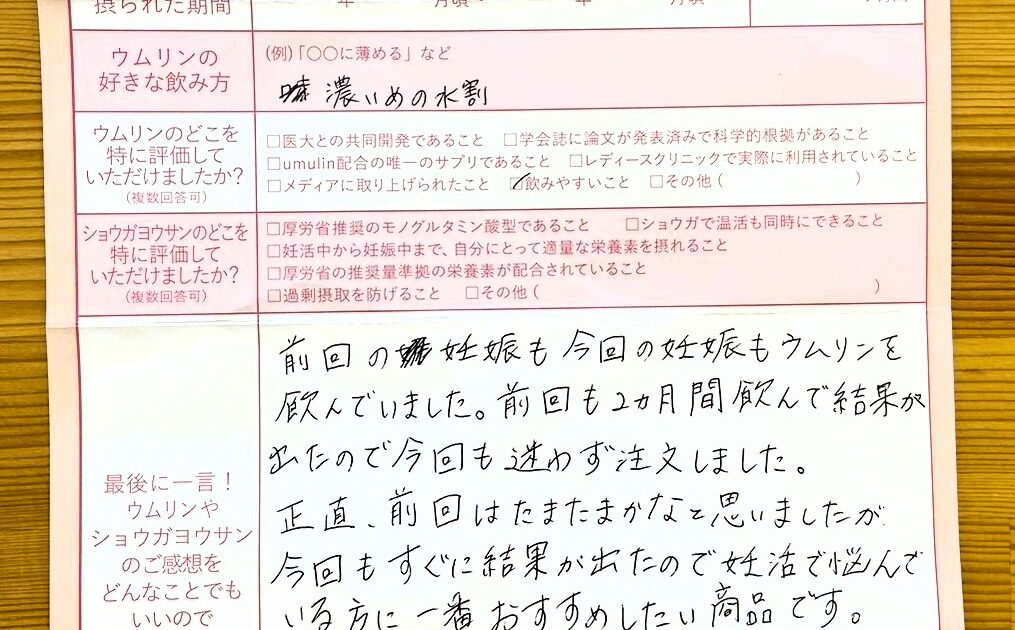 摂られた期間
年 月頃～ 年 月頃
ウムリンの
好きな飲み方
(例)「○○に薄める」など
濃いめの水割
ウムリンのどこを
特に評価して
いただけましたか?
(複数回答可)
□医大との共同開発であること □学会誌に論文が発表済みで科学的根拠があること
□umulin配合の唯一のサプリであること □レディースクリニックで実際に利用されていること
□メディアに取り上げられたこと ☑飲みやすいこと □その他( )
ショウガヨウサンのどこを
特に評価して
いただけましたか?
(複数回答可)
□厚労省推奨のモノグルタミン酸型であること □ショウガで温活も同時にできること
□妊活中から妊娠中まで、自分にとって適量な栄養素を摂れること
□厚労省の推奨量準拠の栄養素が配合されていること
□過剰摂取を防げること □その他( )
最後に一言!
ウムリンや
ショウガヨウサン
のご感想を
どんなことでも
いいので
前回の妊娠も今回の妊娠もウムリンを
飲んでいました。前回も2カ月間飲んで結果が
出たので今回も迷わず注文しました。
正直、前回はたまたまかなと思いましたが
今回もすぐに結果が出たので妊活で悩んで
いる方に一番おすすめしたい商品です。